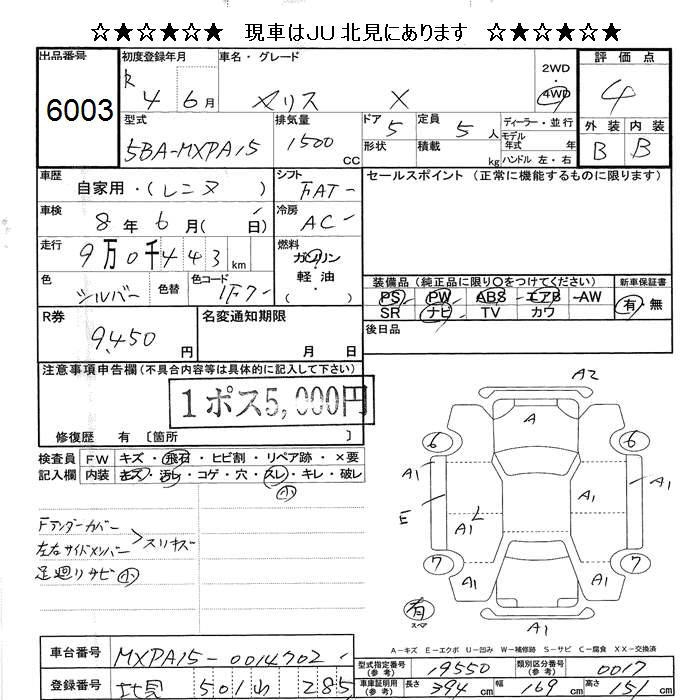 ☆★☆★☆ 現車はJU 北見にあります ☆★☆★☆
出品番号 6003
初度登録年月 R 4 6月
車名・グレード ヤリス X
2WD 4WD
評価点 4
外装 B 内装 B
型式 5BA-MXPA15
排気量 1500 cc
ドア 5 形状
定員 5 人 積載 kg
ディーラー・並行
モデル年式 年
ハンドル 左・右
車歴 自家用・(レンタ )
シフト FAT
セールスポイント (正常に機能するものに限ります)
車検 8年 6月( 日)
冷房 AC
走行 9万0千443 km
燃料 ガソリン・軽油
色 シルバー 色替 色コード 1F7
装備品 (純正品に限り○をつけてください)
PS PW ABS エアB AW
SR ナビ TV カワ
新車保証書 有・無
R券 9,450 円
名変通知期限 月 日
後日品
注意事項申告欄 (不具合内容等は具体的に記入して下さい)
1ポス5,000円
修復歴 有 〔箇所 〕
検査員記入欄
FW キズ・飛石・ヒビ割・リペア跡・×要
内装 キズ・汚レ・コゲ・穴・スレ・キレ・破レ
小
Fフェンダーカバー
左右サイドメンバー スリキズ
足廻りサビ 小
A2
A
6 6
A1 A1 A1
E A1 L A1
7 7
A1 A1
有 スペア
A1
A-キズ E-エクボ U-凹み W-補修跡 S-サビ C-腐食 XX-交換済
車台番号 MXPA15-0014702
型式指定番号(参考) 19550
類別区分番号(参考) 0017
登録番号 北見 501 285
車庫証明用(参考) 長さ 394 cm 幅 169 cm 高さ 151 cm